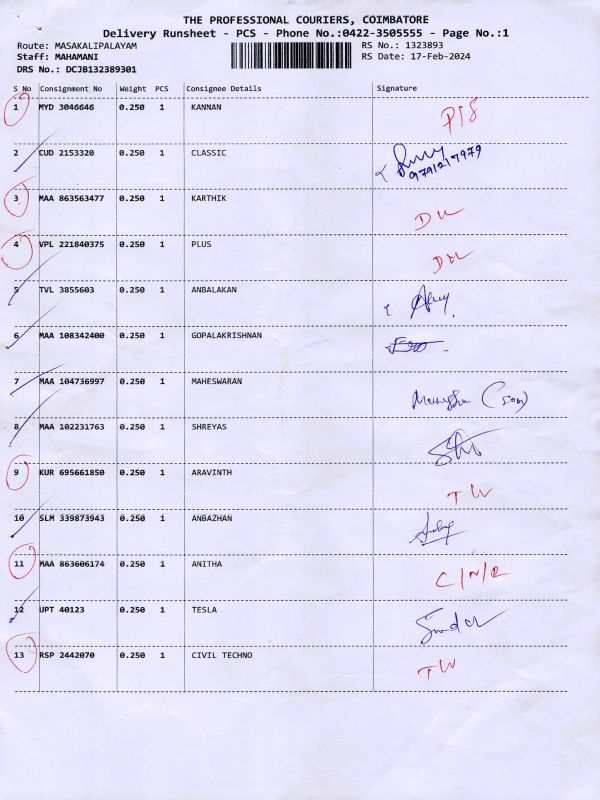 THE PROFESSIONAL COURIERS, COIMBATORE
Delivery Runsheet - PCS - Phone No.:0422-3505555 - Page No.:1
Route: MASAKALIPALAYAM RS No.: 1323893
Staff: MAHAMANI RS Date: 17-Feb-2024
DRS No.: DCJB132389301
S No Consignment No Weight PCS Consignee Details Signature
1 MYD 3046646 0.250 1 KANNAN
2 CUD 2153320 0.250 1 CLASSIC
3 MAA 863563477 0.250 1 KARTHIK
4 VPL 221840375 0.250 1 PLUS
5 TVL 3855603 0.250 1 ANBALAKAN
6 MAA 108342400 0.250 1 GOPALAKRISHNAN
7 MAA 104736997 0.250 1 MAHESWARAN (son)
8 MAA 102231763 0.250 1 SHREYAS
9 KUR 695661850 0.250 1 ARAVINTH TW
10 SLM 339873943 0.250 1 ANBAZHAN
11 MAA 863606174 0.250 1 ANITHA C/N/R
12 UPT 40123 0.250 1 TESLA
13 RSP 2442070 0.250 1 CIVIL TECHNO TW